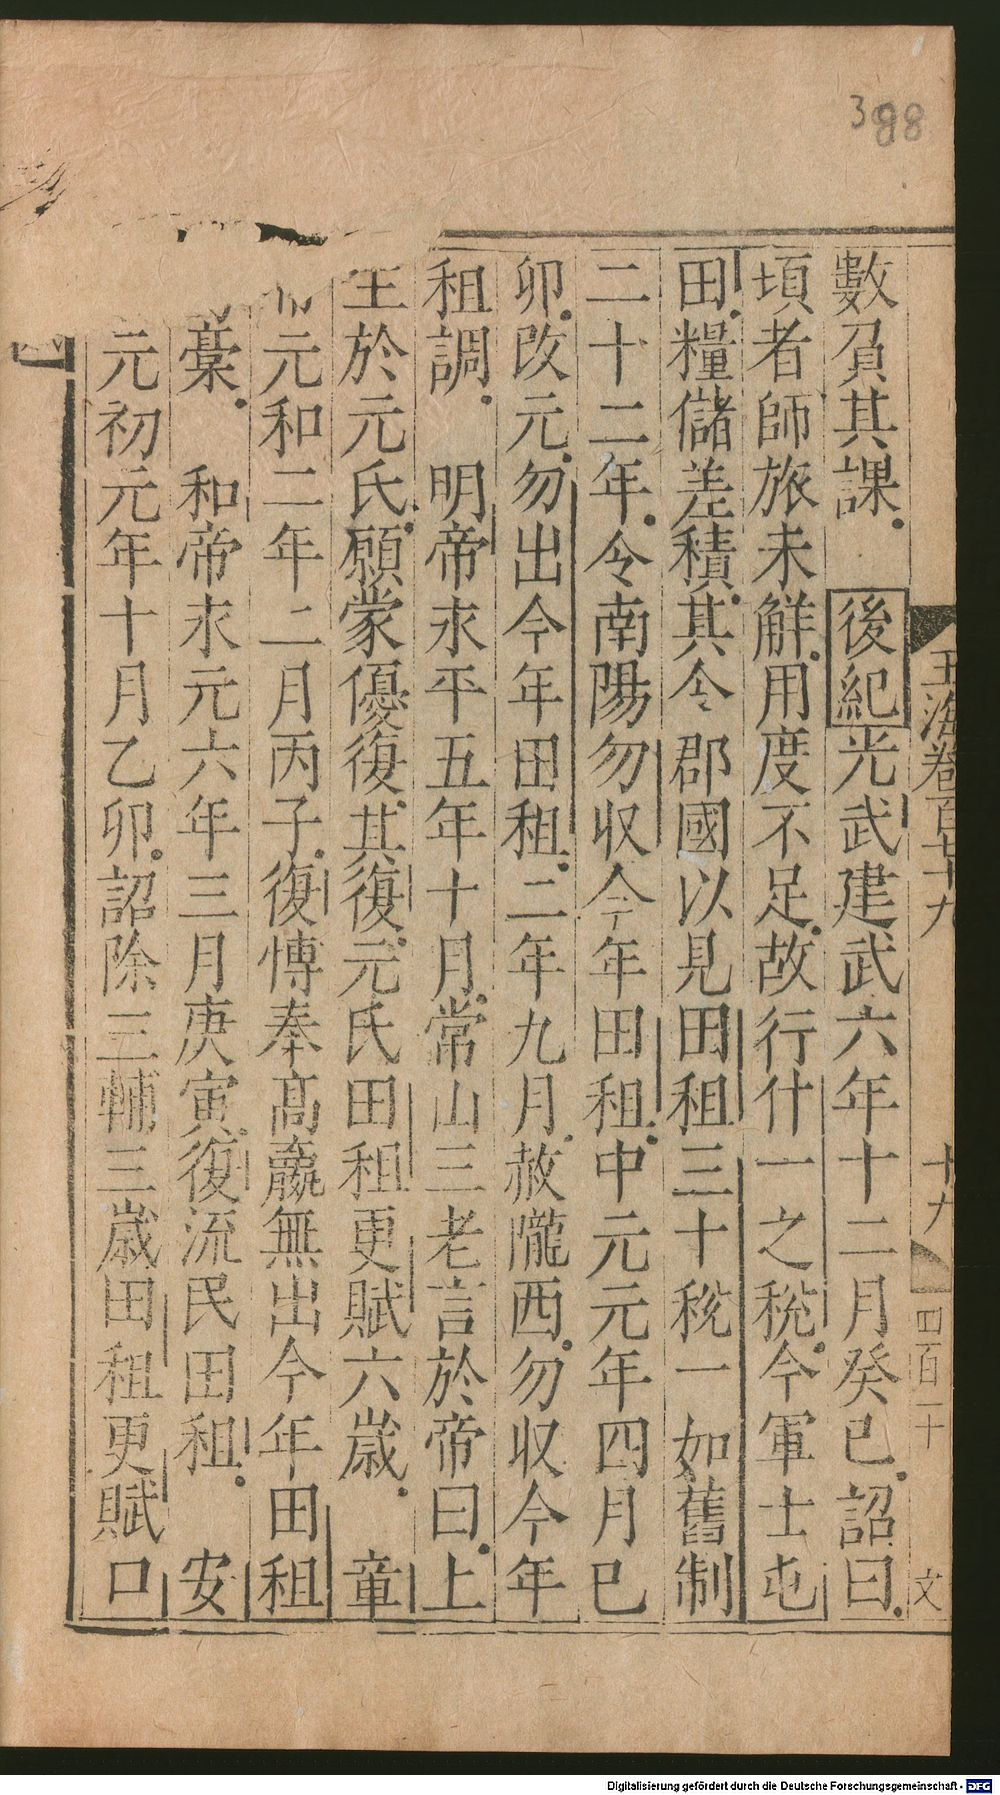 398
玉海卷百七十九
十九
四百二十
文
數負其課。　後紀光武建武六年十二月癸巳。詔曰。
頃者師旅未解。用度不足。故行什一之稅。今軍士屯
田。糧儲差積。其令郡國以見田租三十稅一如舊制
二十二年。令南陽勿收今年田租。中元元年四月巳
卯。改元。勿出今年田租。二年九月。赦隴西。勿收今年
租調。　明帝永平五年十月。常山三老言於帝曰。上
生於元氏。願蒙優復。其復元氏田租更賦六歲。　章
元和二年二月丙子。復博奉高嬴無出今年田租
稾。　和帝永元六年三月庚寅。復流民田租。　安
元初元年十月乙卯。詔除三輔三歲田租更賦口
Digitalisierung gefördert durch die Deutsche Forschungsgemeinschaft - DFG